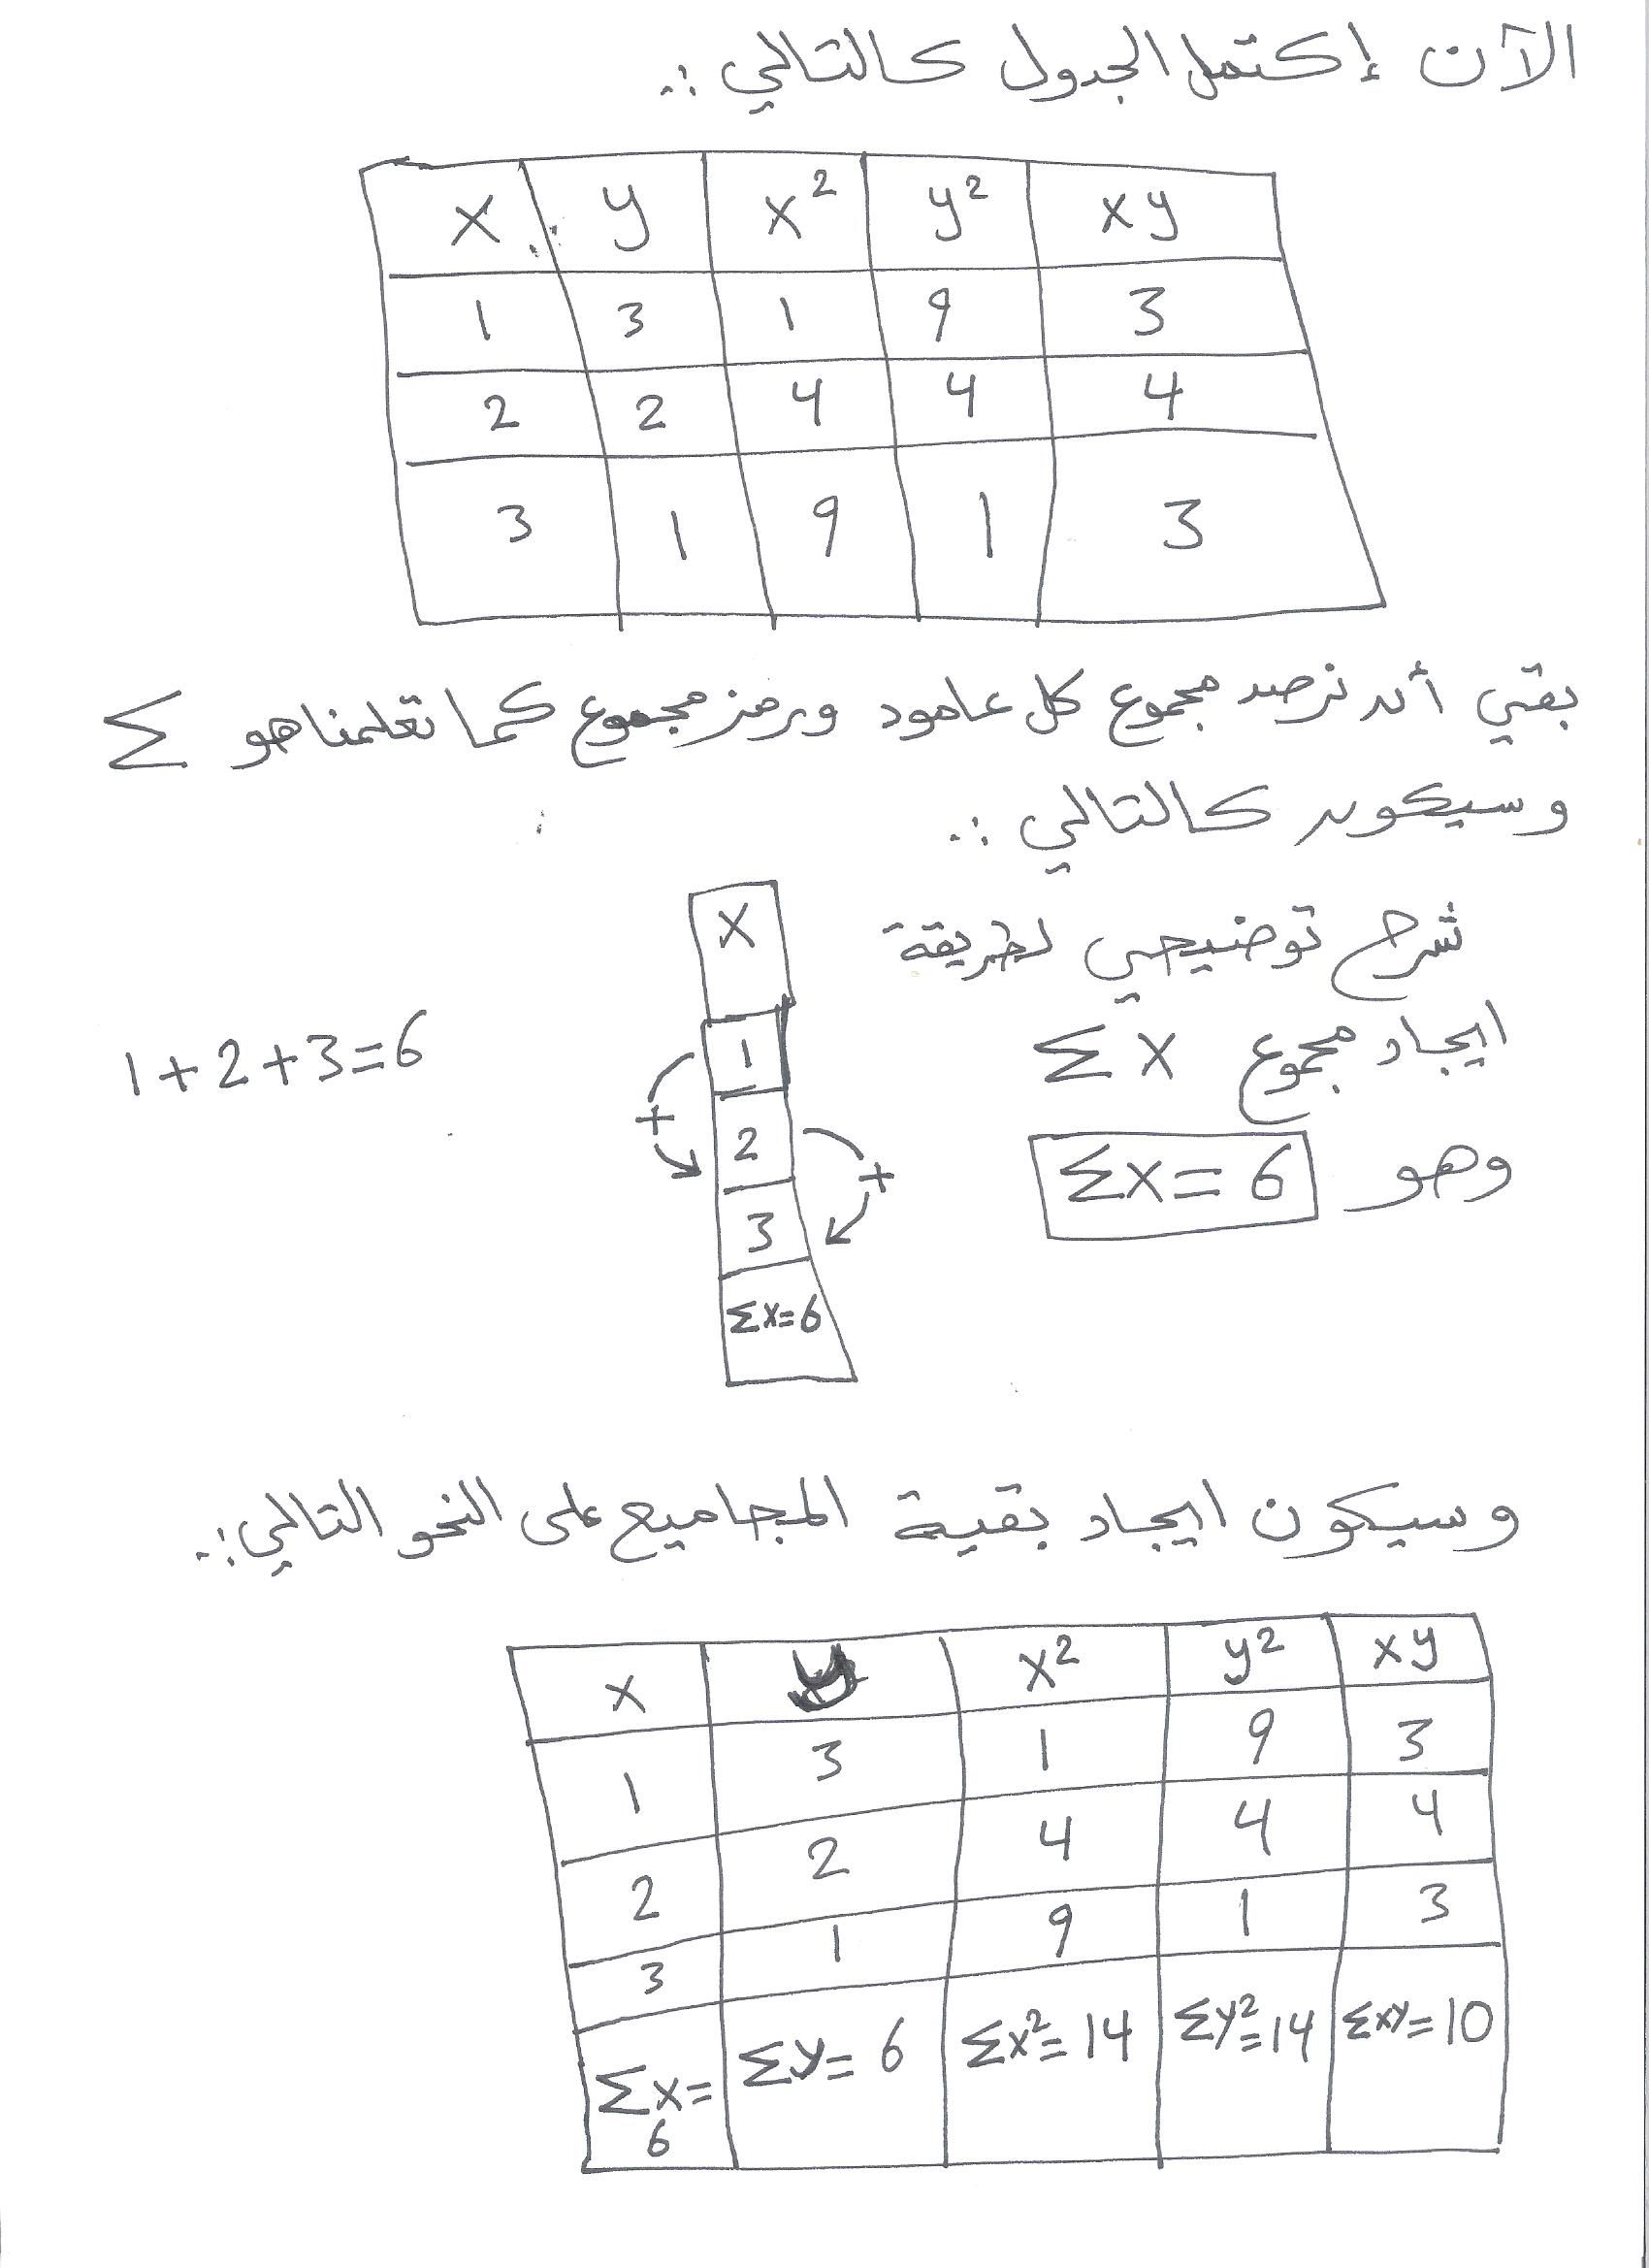 الآن إكتمل الجدول كالتالي :.
x y x² y² xy
1 3 1 9 3
2 2 4 4 4
3 1 9 1 3
بقي أن نرصد مجموع كل عامود ورمز مجموع كما تعلمنا هو Σ
وسيكون كالتالي :.
شرح توضيحي لطريقة
ايجاد مجموع Σx
وهو Σx=6
x
1
+
2
+
3
Σx=6
1+2+3=6
وسيكون ايجاد بقية المجاميع على النحو التالي :.
x y x² y² xy
1 3 1 9 3
2 2 4 4 4
3 1 9 1 3
Σx=6 Σy=6 Σx²=14 Σy²=14 Σxy=10